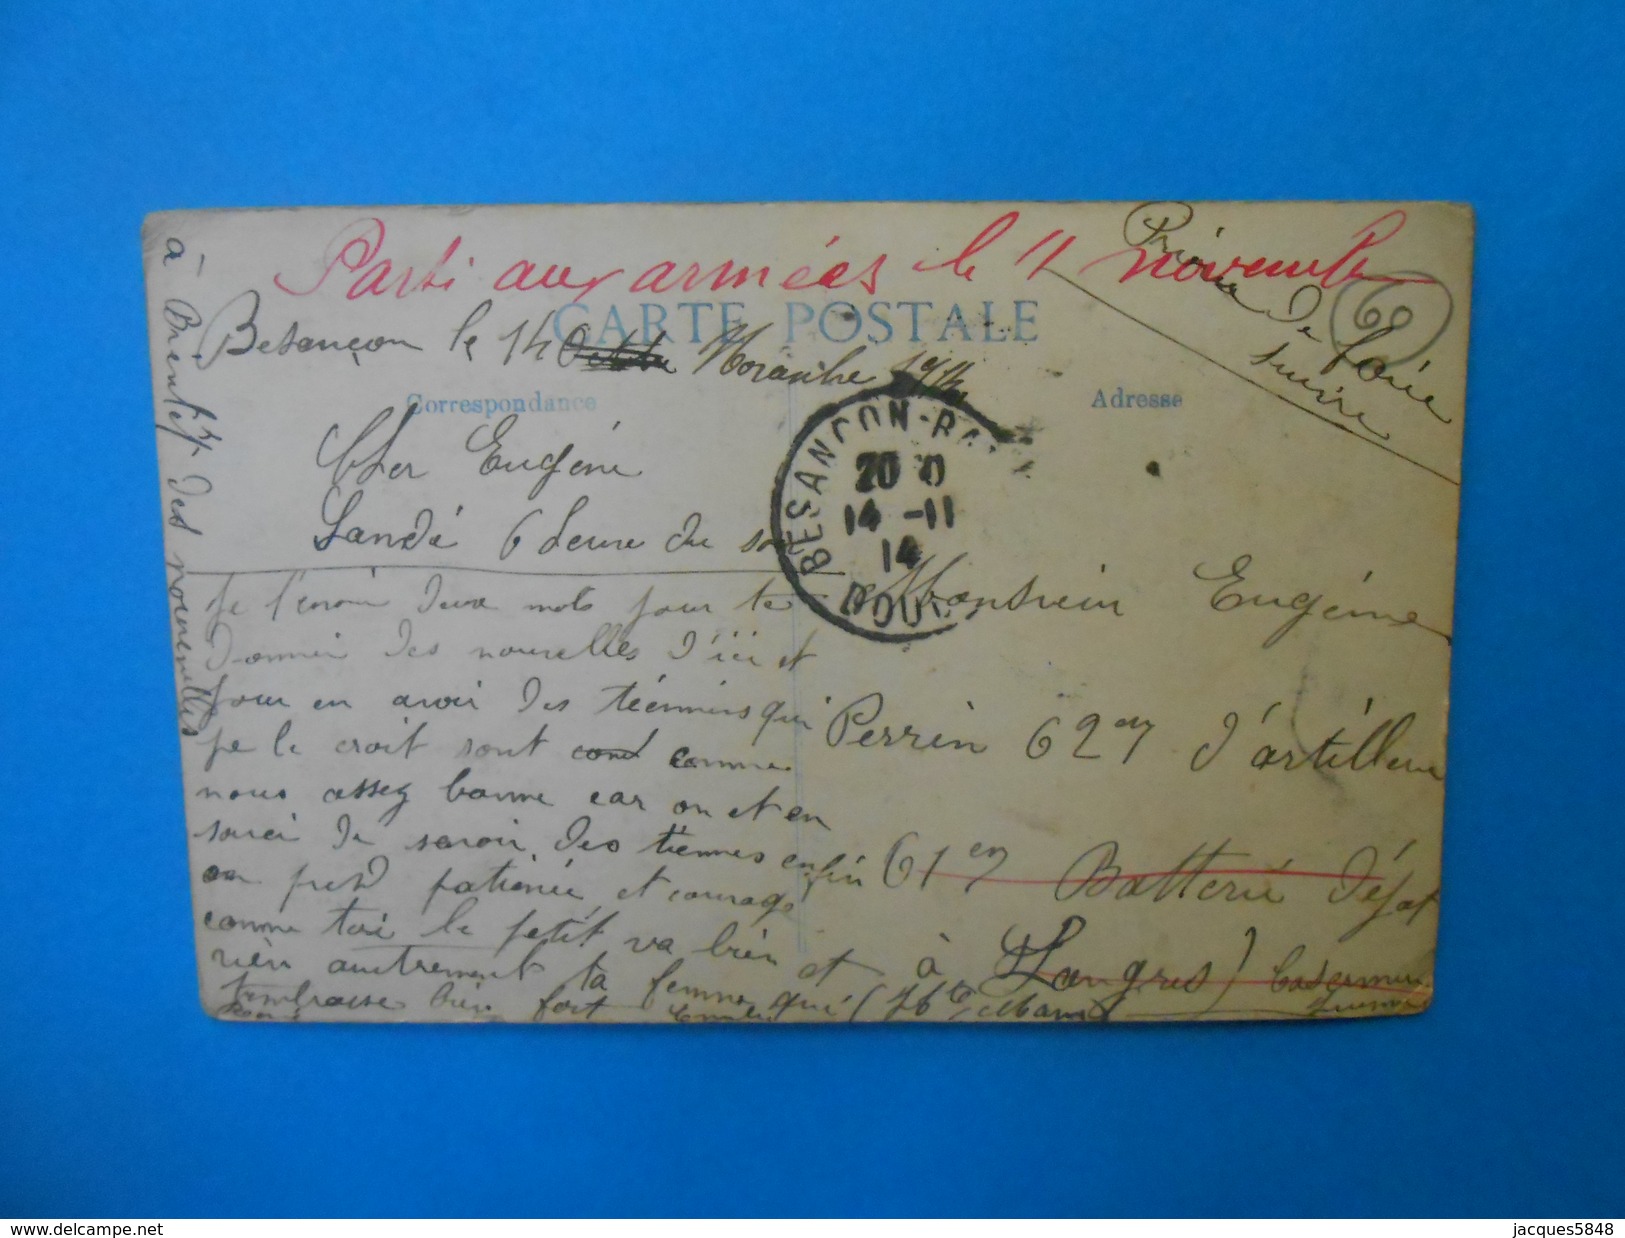 Parti aux armées le 11 novembre
Prière de faire
suivre
60
CARTE POSTALE
Besançon le 14 Novembre 1914
Correspondance
Adresse
Cher Eugène
Landé 6 heure du soir
BESANÇON-RA
20
14 -11
14
DOUBS
Je t'envoie deux mots pour te
donnier des nouvelles d'ici et
pour en avoir des tiénniers qui
je le croit sont cond comme
nous assez bonne car on et en
souci de savoir des tiennes enfin
on prend patience et courage
comme toi le petit va bien et
rien autrement ta femme qui
t'embrasse bien fort
à Bientôt des nouvenelles
Monsieur Eugène
Perrin 62em d'artillerie
61em Batterie dépot
à Langres)
jacques5848
delcampe.net